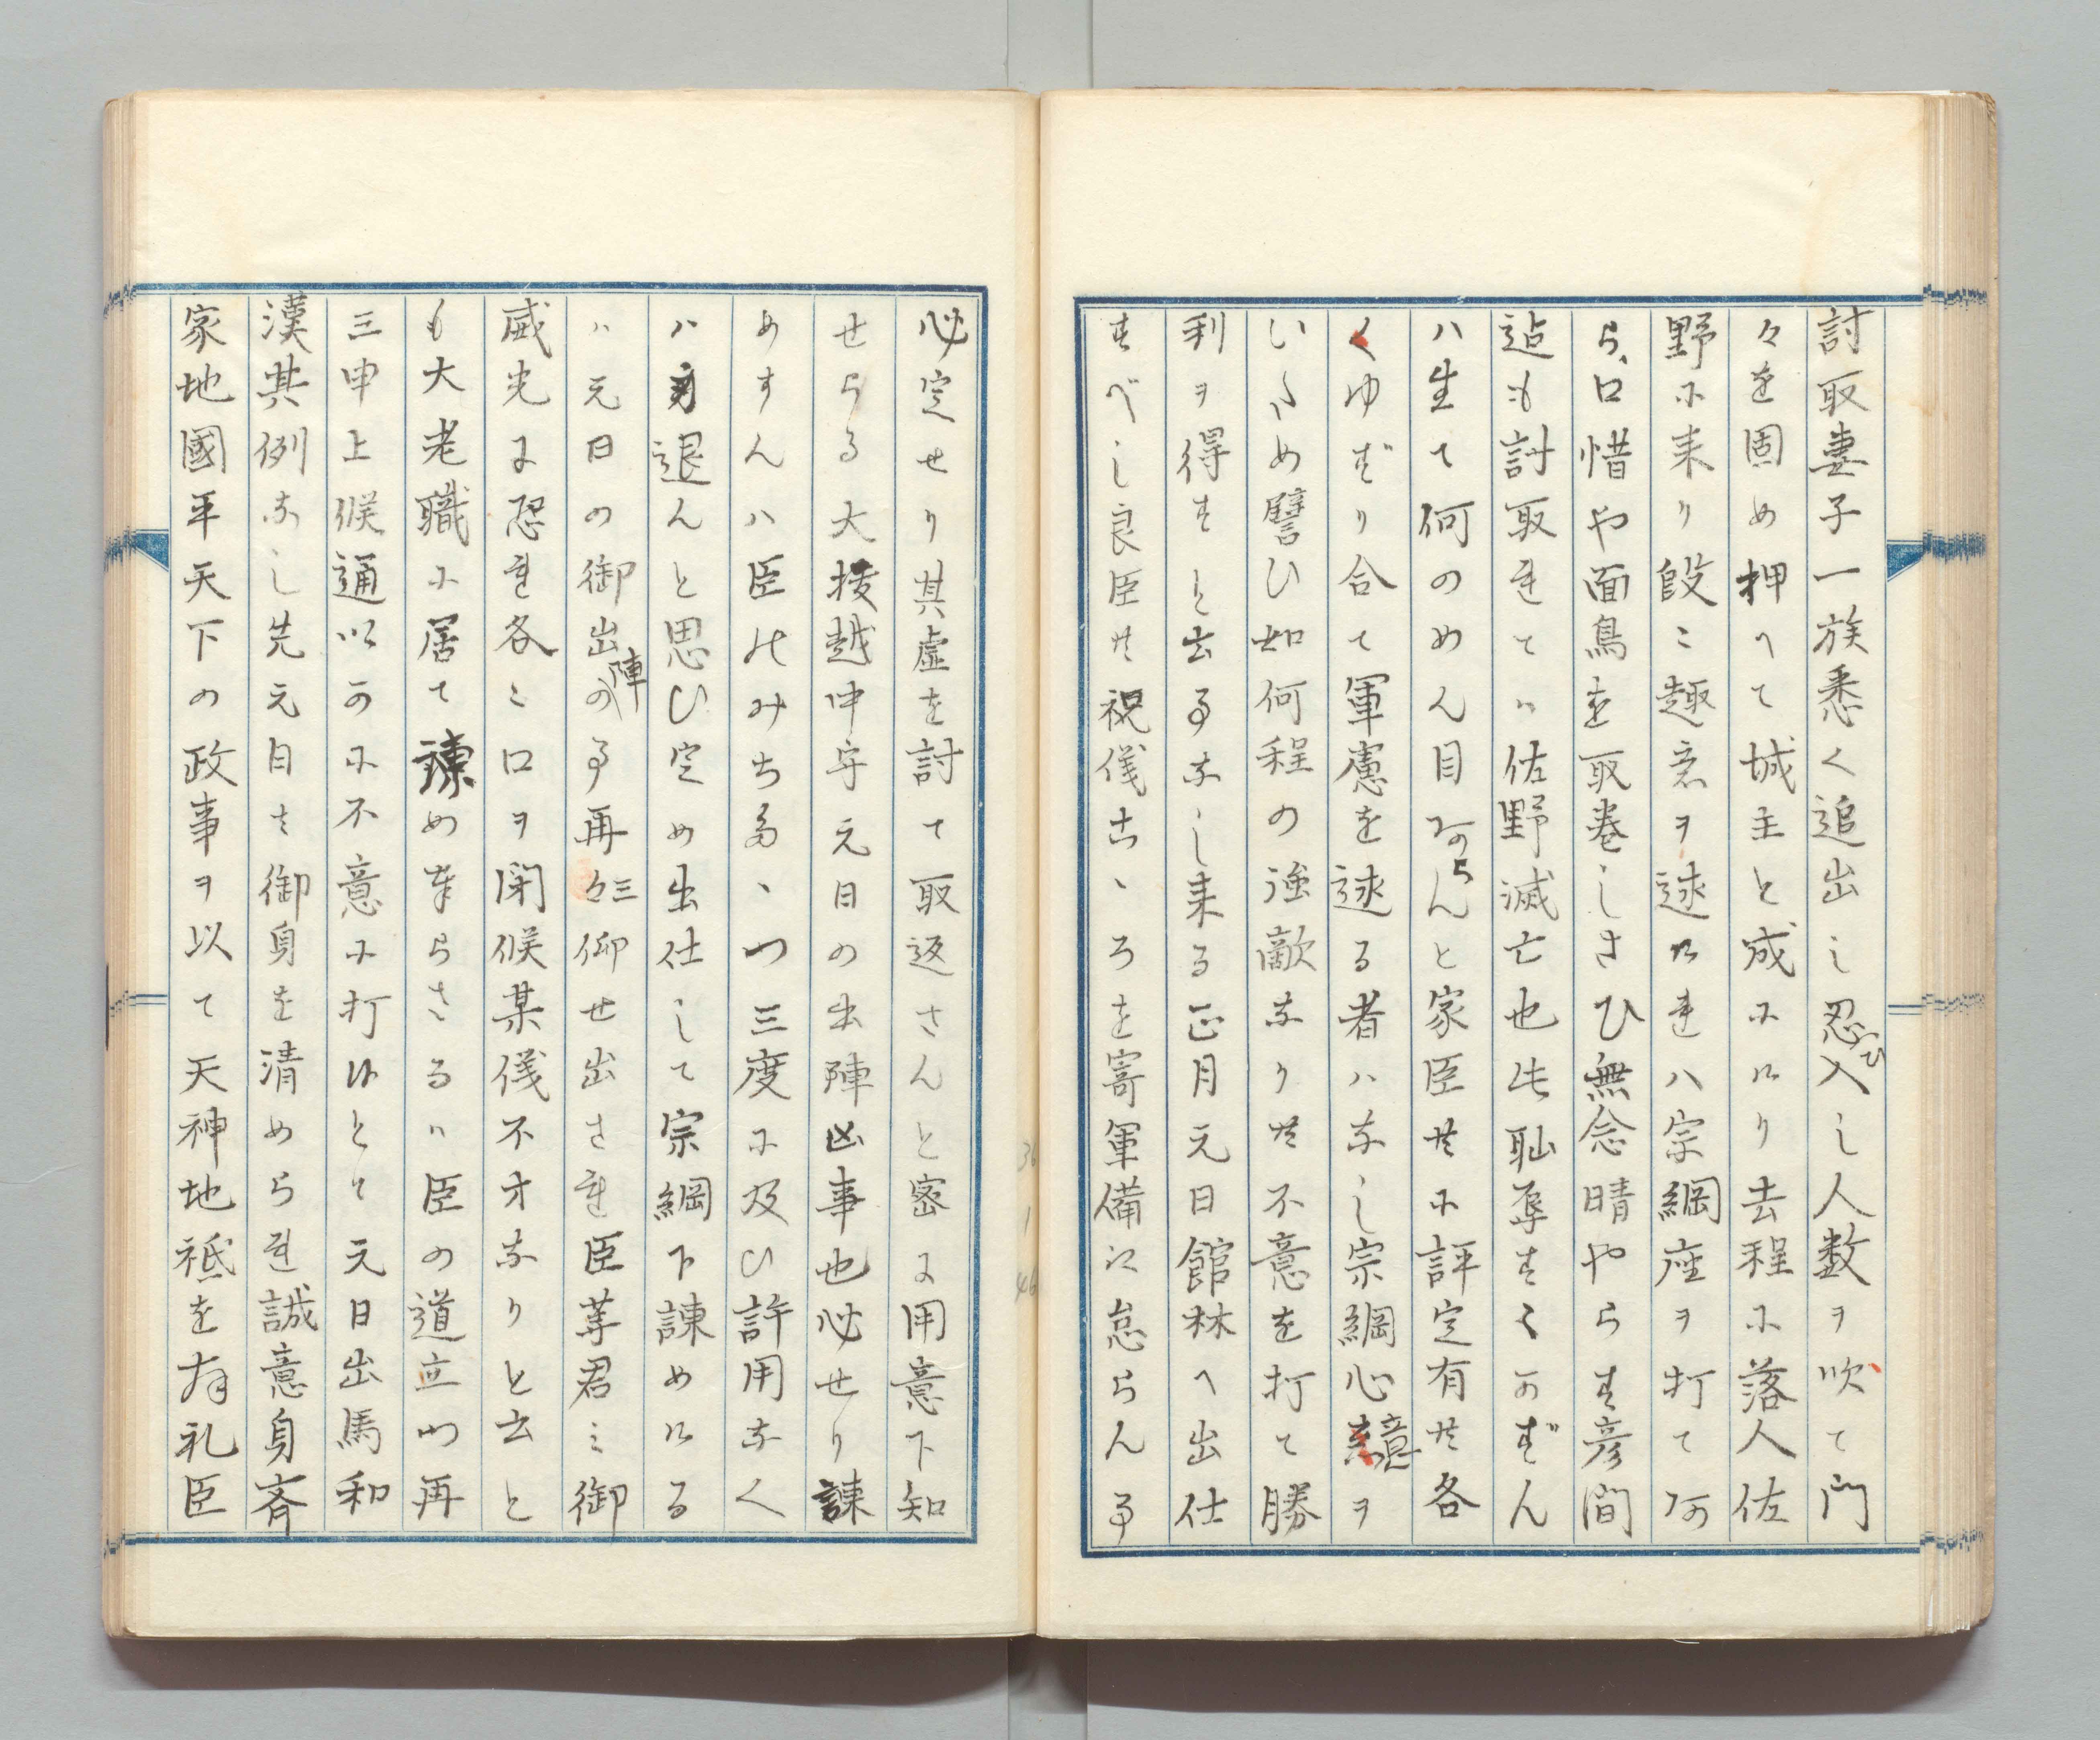 討取妻子一族悉く追出し忍ひ入し人数ヲ吹て門
々を固め押へて城主と成にけり去程に落人佐
野に来り段々趣意ヲ述けれハ宗綱座ヲ打てあ
ら口惜や面鳥を取巻しさひ無念晴やらす彦間
迠も討取れてハ佐野滅亡也此耻辱すゝかずん
ハ生て何のめん目あらんと家臣共に評定有共各
くゆずり合て軍慮を述る者ハなし宗綱心意ヲ
いため譬ひ如何程の強敵なり共不意を打て勝
利ヲ得すと云る事なし来る正月元日館林へ出仕
すべし良臣共祝儀にこゝろを寄軍備に怠らん事
必定せり其虚を討て取返さんと密に用意下知
せらる大抜越中守元日の出陣凶事也必せり諫
めすんハ臣のみちたゝつ三度に及ひ許用なく
ハ身退んと思ひ定め出仕して宗綱下諫めける
ハ元日の御出陣の事再三仰せ出され臣等君ミ御
威光に恐れ各々口ヲ閉候某儀不才なりと云と
も大老職に居て諫め奉らさるハ臣の道立つ再
三申上候通以かに不意に打けとて元日出馬和
漢其例なし先元日ハ御身を清められ誠意身斉
家地國平天下の政事ヲ以て天神地祇を拝礼臣